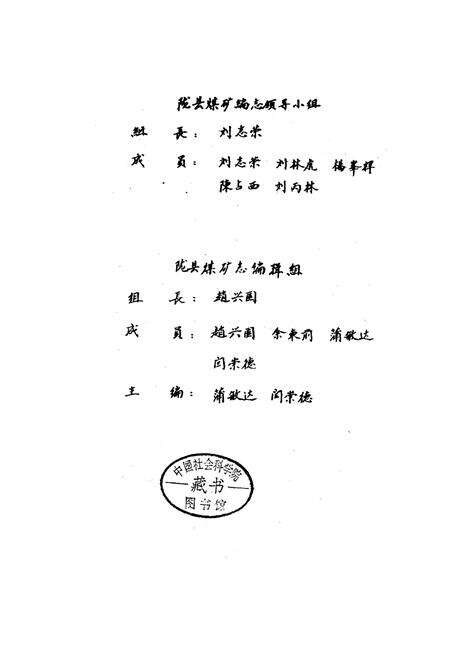 陇县煤矿编志领导小组
组 長：刘志荣
成 员：刘志荣 刘林虎 杨峯辉
陳占西 刘丙林
陇县煤矿志编辑組
组 長：趙兴国
成 员：趙兴国 余東前 蒲敏达
闫荣德
主 编：蒲敏达 闫荣德
中国社会科学院
藏书
图书馆